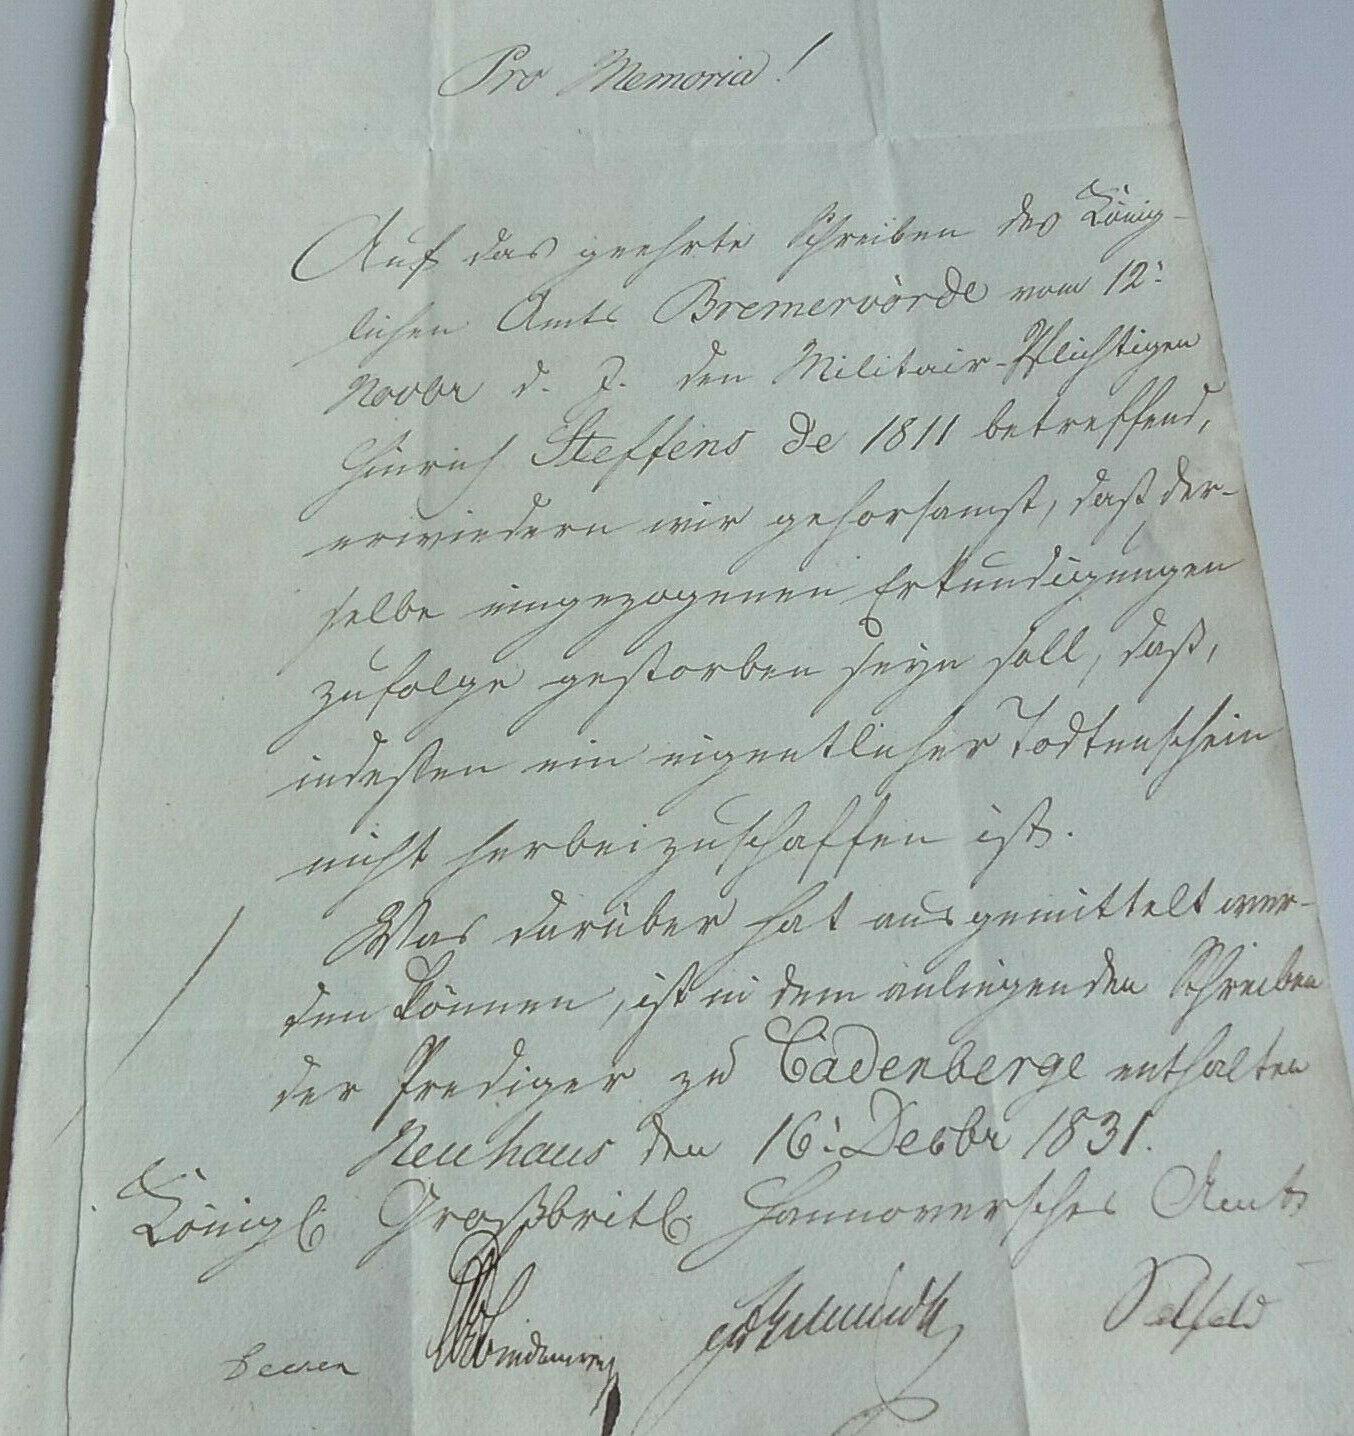 Pro Memoria!
Auf das geehrte Schreiben des König-
lichen Amts Bremervörde vom 12t
Novbr d. J. den Militair-Pflichtigen
Hinrich Steffens de 1811 betreffend,
erwiedern wir gehorsamst, daß der-
selbe eingezogenen Erkundigungen
zufolge gestorben seyn soll, daß,
indeßen ein eigentlicher Todtenschein
nicht herbeizuschaffen ist.
Was darüber hat ausgemittelt wer-
den können, ist in dem anliegenden Schreiben
der Prediger zu Cadenberge enthalten
Neuhaus den 16t Decbr 1831.
Königl. Großbritl. Hannoversches Amt